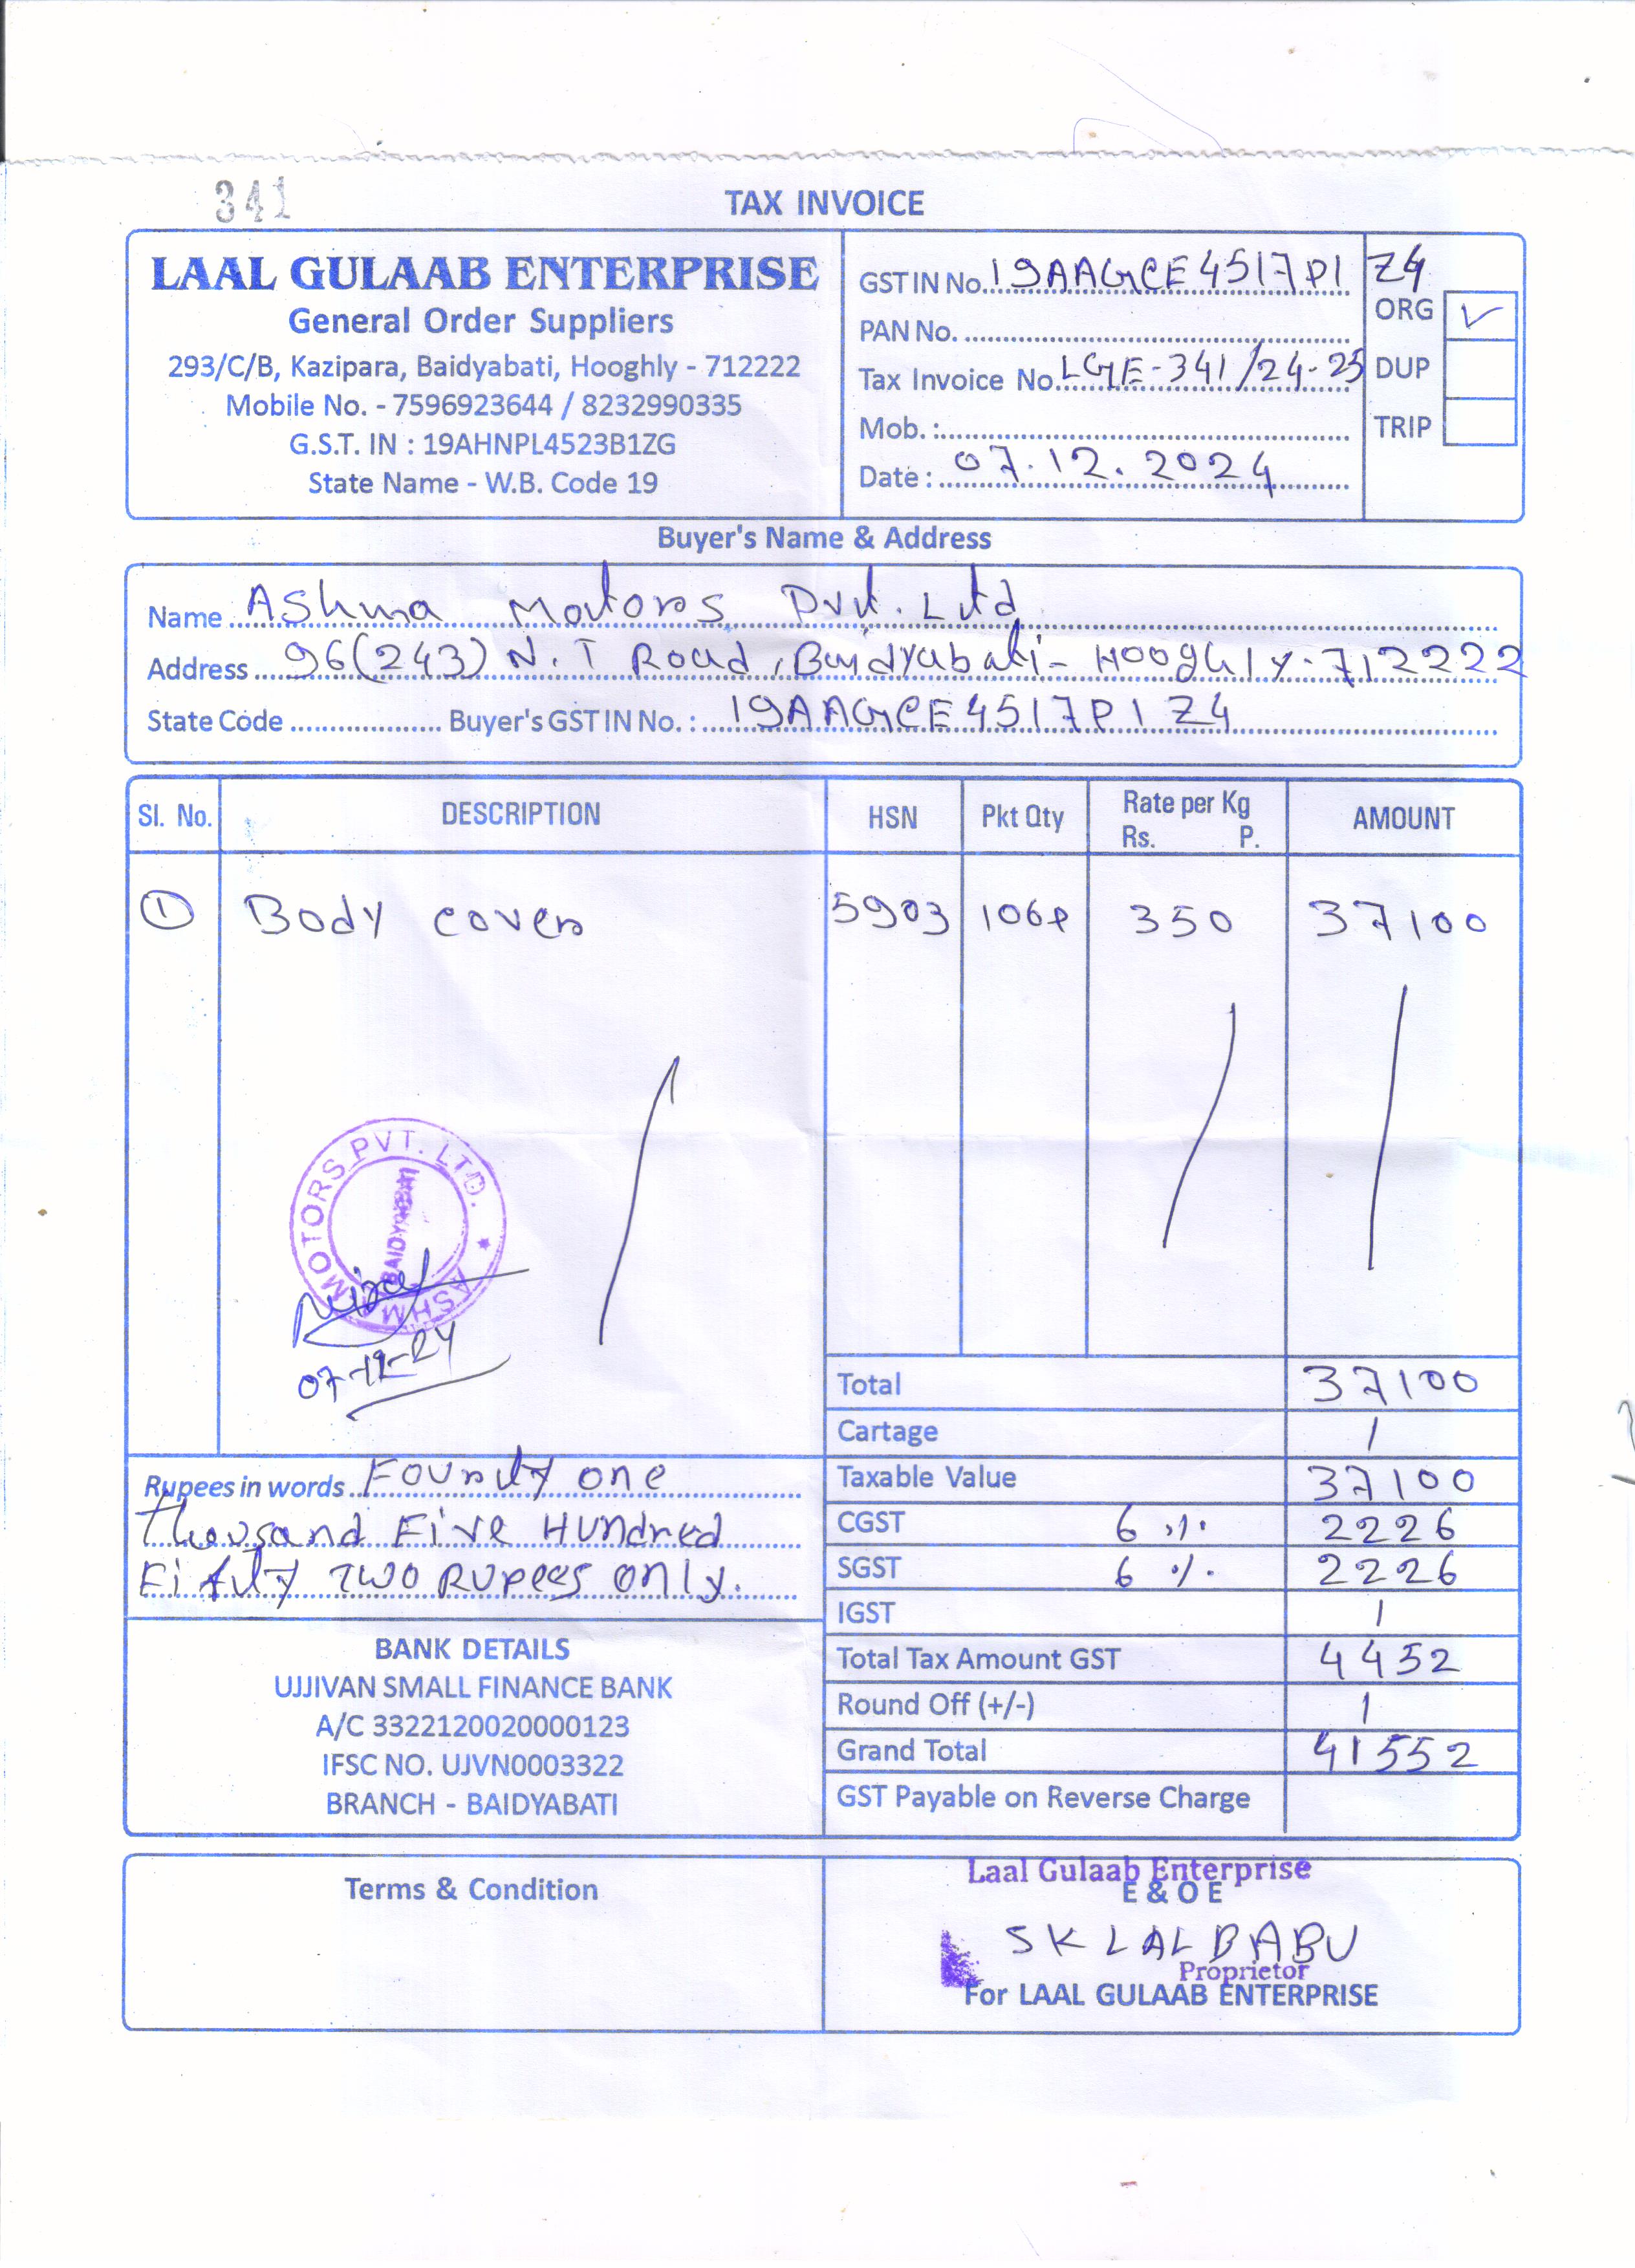 341
TAX INVOICE
LAAL GULAAB ENTERPRISE
General Order Suppliers
293/C/B, Kazipara, Baidyabati, Hooghly - 712222
Mobile No. - 7596923644 / 8232990335
G.S.T. IN : 19AHNPL4523B1ZG
State Name - W.B. Code 19
GST IN No. 19AAGCE4517P1Z4
PAN No.
Tax Invoice No. LGE-341/24-25
Mob. :
Date : 07.12.2024
ORG ✓
DUP
TRIP
Buyer's Name & Address
Name Ashma Motors Pvt. Ltd
Address 96(243) N.T Road, Baidyabati- Hooghly-712222
State Code Buyer's GST IN No. : 19AAGCE4517P1Z4
Sl. No. DESCRIPTION HSN Pkt Qty Rate per Kg Rs. P. AMOUNT
① Body cover 5903 106P 350 37100
ASHMA MOTORS PVT. LTD.
BAIDYABATI
07-12-24
Total 37100
Cartage /
Taxable Value 37100
CGST 6 % 2226
SGST 6 % 2226
IGST /
Total Tax Amount GST 4452
Round Off (+/-) /
Grand Total 41552
GST Payable on Reverse Charge
Rupees in words Fourty one
thousand Five Hundred
Fifty Two Rupees only.
BANK DETAILS
UJJIVAN SMALL FINANCE BANK
A/C 3322120020000123
IFSC NO. UJVN0003322
BRANCH - BAIDYABATI
Terms & Condition
Laal Gulaab Enterprise
E & O E
SK LAL BABU
Proprietor
For LAAL GULAAB ENTERPRISE